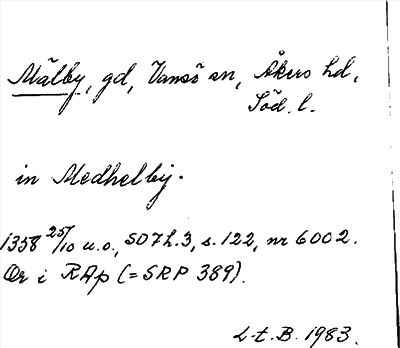 Mälby, gd, Vansö sn, Åkers hd,
Söd. l.
in Medhelby.
1358 25/10 u.o., SD 7 h.3, s. 122, nr 6002.
Or i RAp (=SRP 389).
L-t. B. 1983.